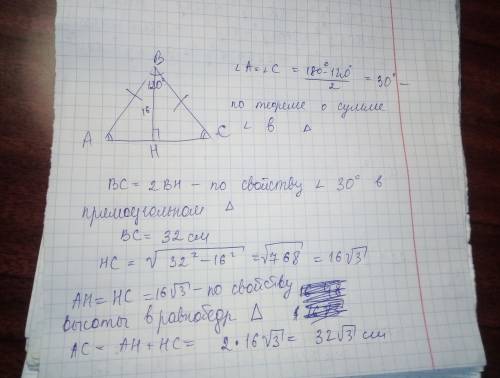 B
120°
16
A
H
C
∠A=∠C = (180°-120°)/2 = 30° –
по теореме о сумме
∠ в Δ
BC = 2BH – по свойству ∠ 30° в
прямоугольном Δ
BC = 32 см
HC = √(32² – 16²) = √768 = 16√3
AH = HC = 16√3 – по свойству
высоты в равнобедр. Δ
AC = AH + HC = 2 · 16√3 = 32√3 см